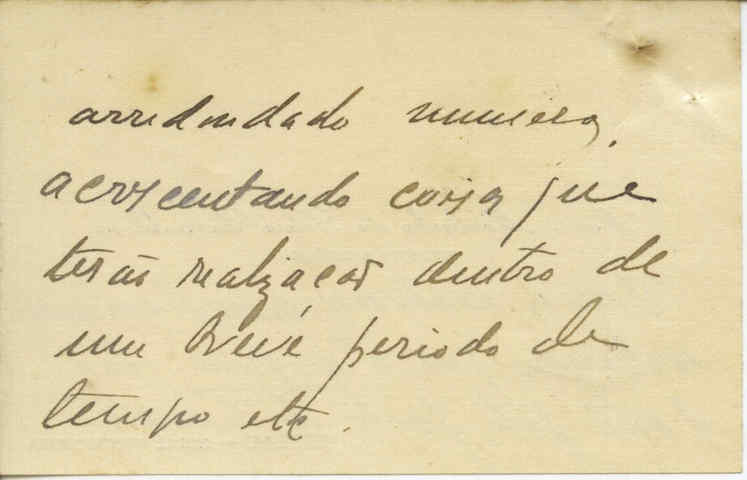 arredondado numero,
acrescentando coisas que
terão realização dentro de
um breve periodo de
tempo etc.